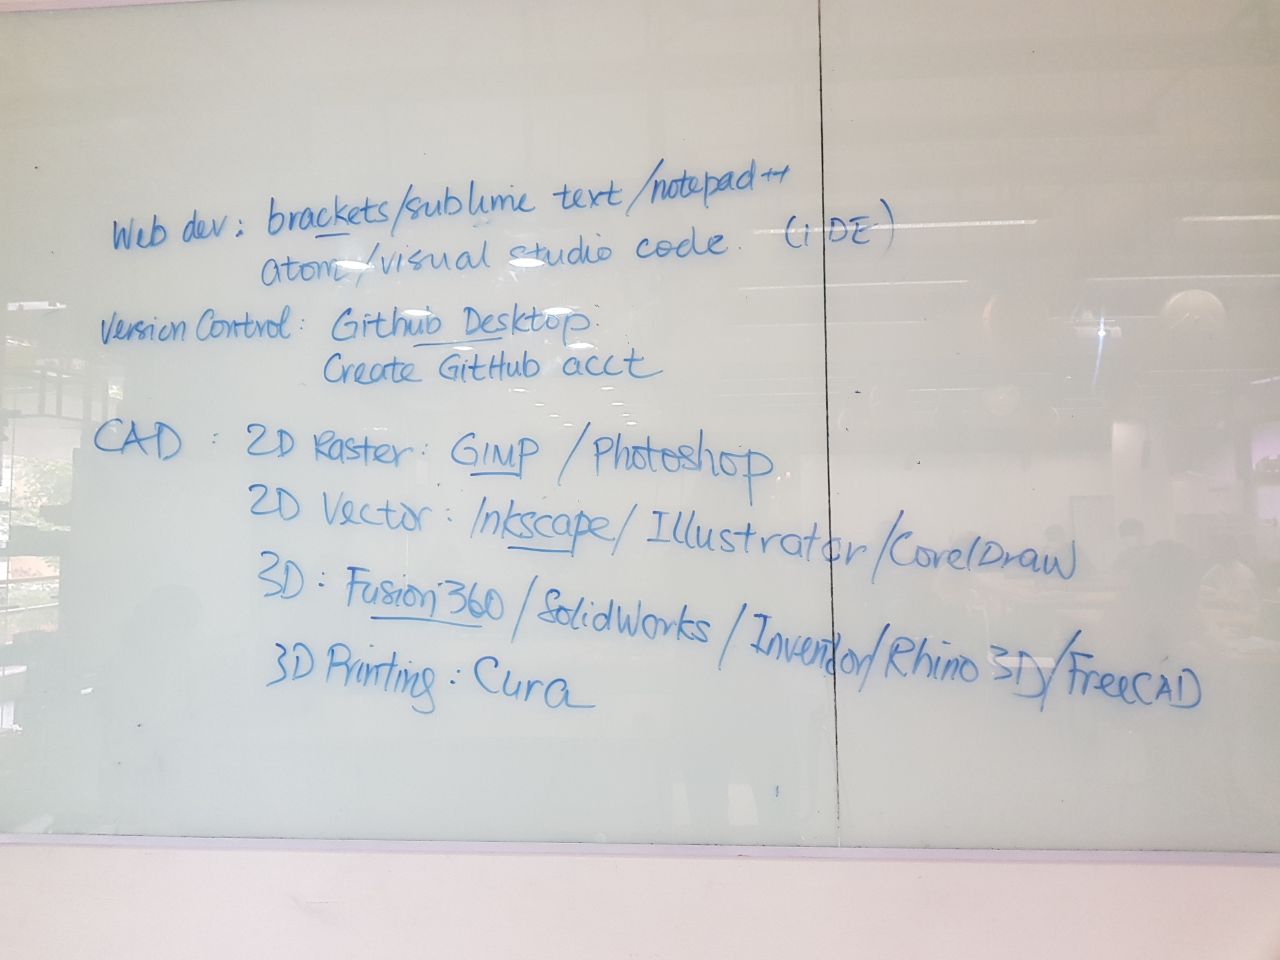 Web dev: brackets/sublime text/notepad++
atom/visual studio code. (iDE)
Version Control: Github Desktop.
Create GitHub acct
CAD : 2D Raster: GIMP / Photoshop
2D Vector: Inkscape/ Illustrator/CorelDraw
3D: Fusion 360/SolidWorks/Inventor/Rhino 3D/FreeCAD
3D Printing: Cura